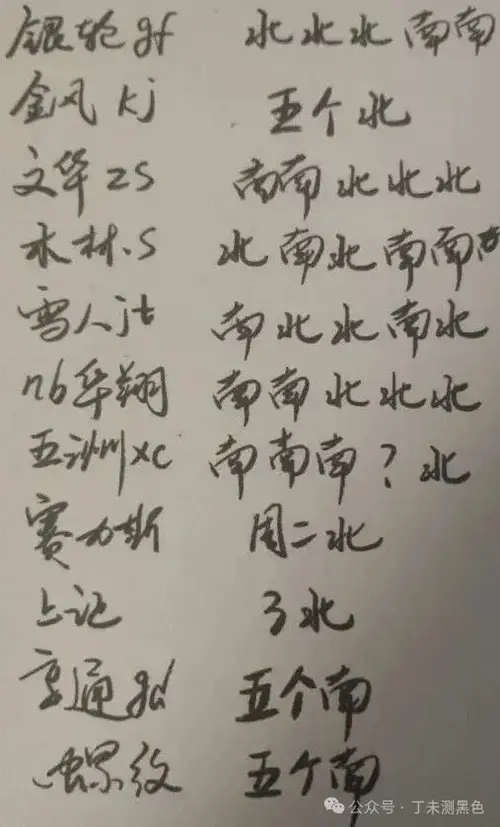 银轮gf 北北北南南
金风kj 五个北
文华zs 南南北北北
木林.S 北南北南南
雪人jt 南北北南北
nb华翔 南南北北北
五洲xc 南南南？北
赛力斯 周二北
上记 3北
亨通gd 五个南
螺纹 五个南
公众号·丁未测黑色